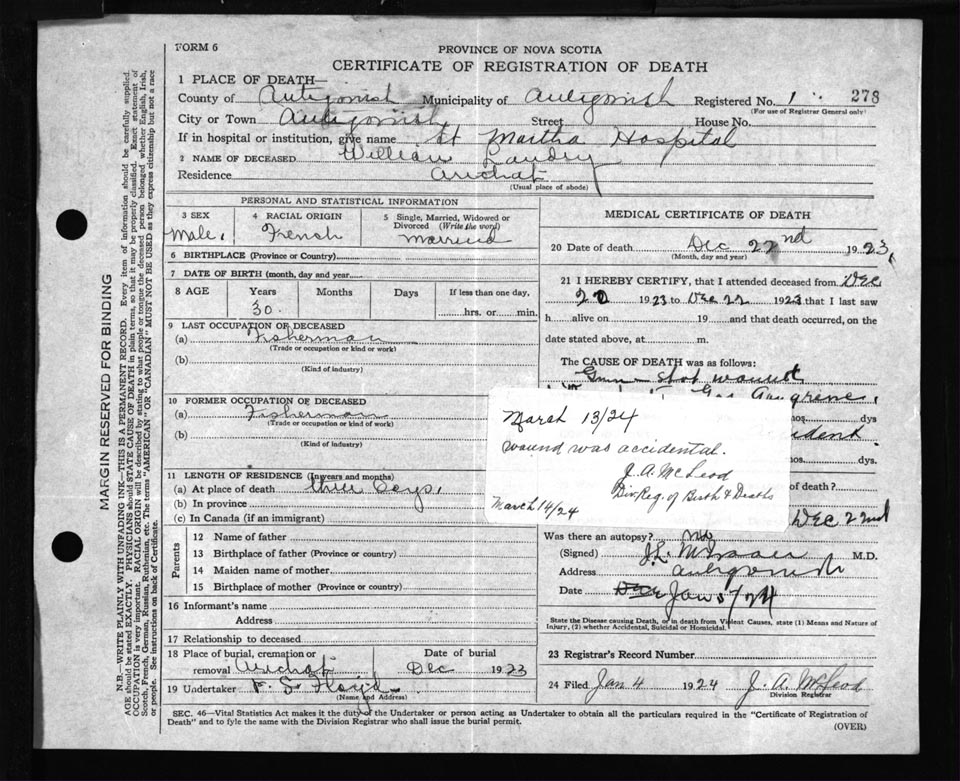 FORM 6
PROVINCE OF NOVA SCOTIA
CERTIFICATE OF REGISTRATION OF DEATH
1 PLACE OF DEATH—
County of Antigonish Municipality of Antigonish Registered No. 1 278
(For use of Registrar General only)
City or Town Antigonish Street House No.
If in hospital or institution, give name St Martha Hospital
2 NAME OF DECEASED William Landry
Residence Arichat
(Usual place of abode)
PERSONAL AND STATISTICAL INFORMATION
3 SEX 4 RACIAL ORIGIN 5 Single, Married, Widowed or Divorced (Write the word)
Male. French Married
6 BIRTHPLACE (Province or Country)
7 DATE OF BIRTH (month, day and year)
8 AGE Years Months Days If less than one day,
30. hrs. or min.
9 LAST OCCUPATION OF DECEASED
(a) Fisherman
(Trade or occupation or kind or work)
(b)
(Kind of industry)
10 FORMER OCCUPATION OF DECEASED
(a) Fisherman
(Trade or occupation or kind or work)
(b)
(Kind of industry)
11 LENGTH OF RESIDENCE (In years and months)
(a) At place of death three Deys.
(b) In province
(c) In Canada (if an immigrant)
Parents
12 Name of father
13 Birthplace of father (Province or country)
14 Maiden name of mother
15 Birthplace of mother (Province or country)
16 Informant's name
Address
17 Relationship to deceased
18 Place of burial, cremation or removal Arichat Date of burial Dec 1923
19 Undertaker F. S. Floyd
(Name and Address)
MEDICAL CERTIFICATE OF DEATH
20 Date of death Dec 22nd 1923,
(Month, day and year)
21 I HEREBY CERTIFY, that I attended deceased from Dec
20 1923 to Dec 22 1923 that I last saw
h alive on 19 and that death occurred, on
date stated above, at m.
The CAUSE OF DEATH was as follows:
Gun-shot wound,
Gas Gangrene,
mos. dys
accident.
mos. dys.
March 13/24
wound was accidental.
J. A. McLeod
Div. Reg. of Births & Deaths
March 14/24
of death?
Dec 22nd
Was there an autopsy? no
(Signed) M.D.
Address Antigonish
Date Dec Jan 5/24
State the Disease causing Death, or in death from Violent Causes, state (1) Means and Nature of
Injury, (2) whether Accidental, Suicidal or Homicidal.
23 Registrar's Record Number
24 Filed Jan 4 1924 J. A. McLeod
Division Registrar
SEC. 46—Vital Statistics Act makes it the duty of the Undertaker or person acting as Undertaker to obtain all the particulars required in the "Certificate of Registration of
Death" and to fyle the same with the Division Registrar who shall issue the burial permit.
(OVER)
MARGIN RESERVED FOR BINDING
N.B.—WRITE PLAINLY WITH UNFADING INK—THIS IS A PERMANENT RECORD. Every item of information should be carefully supplied.
AGE should be stated EXACTLY. PHYSICIANS should STATE CAUSE OF DEATH in plain terms, so that it may be properly classified. Exact statement of
OCCUPATION is very important. RACIAL ORIGIN will be described by stating to what people or tongue the deceased person belonged whether English, Irish,
Scotch, French, German, Russian, Ruthenian, etc. The terms "AMERICAN" OR "CANADIAN" MUST NOT BE USED as they express citizenship but not a race
or people. See instructions on back of Certificate.